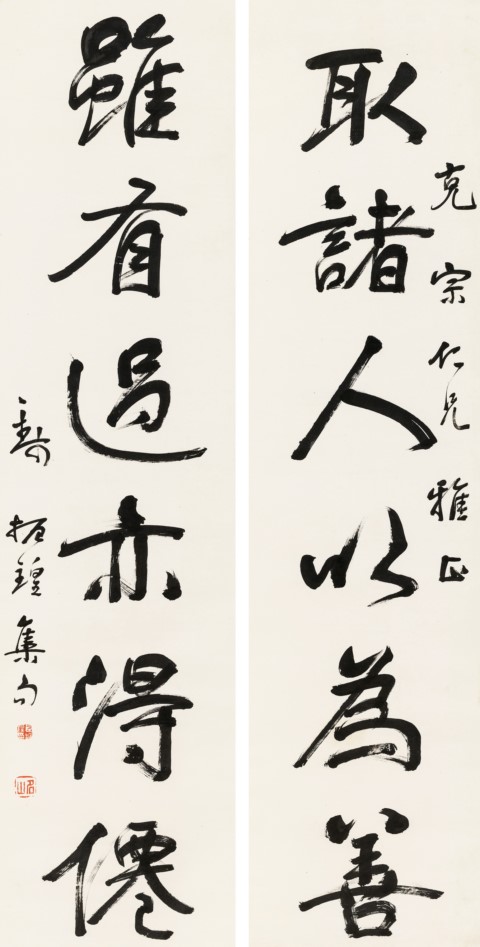 克宗仁兄雅正
取諸人以為善
雖有過亦得僊
振鍠集句
名山